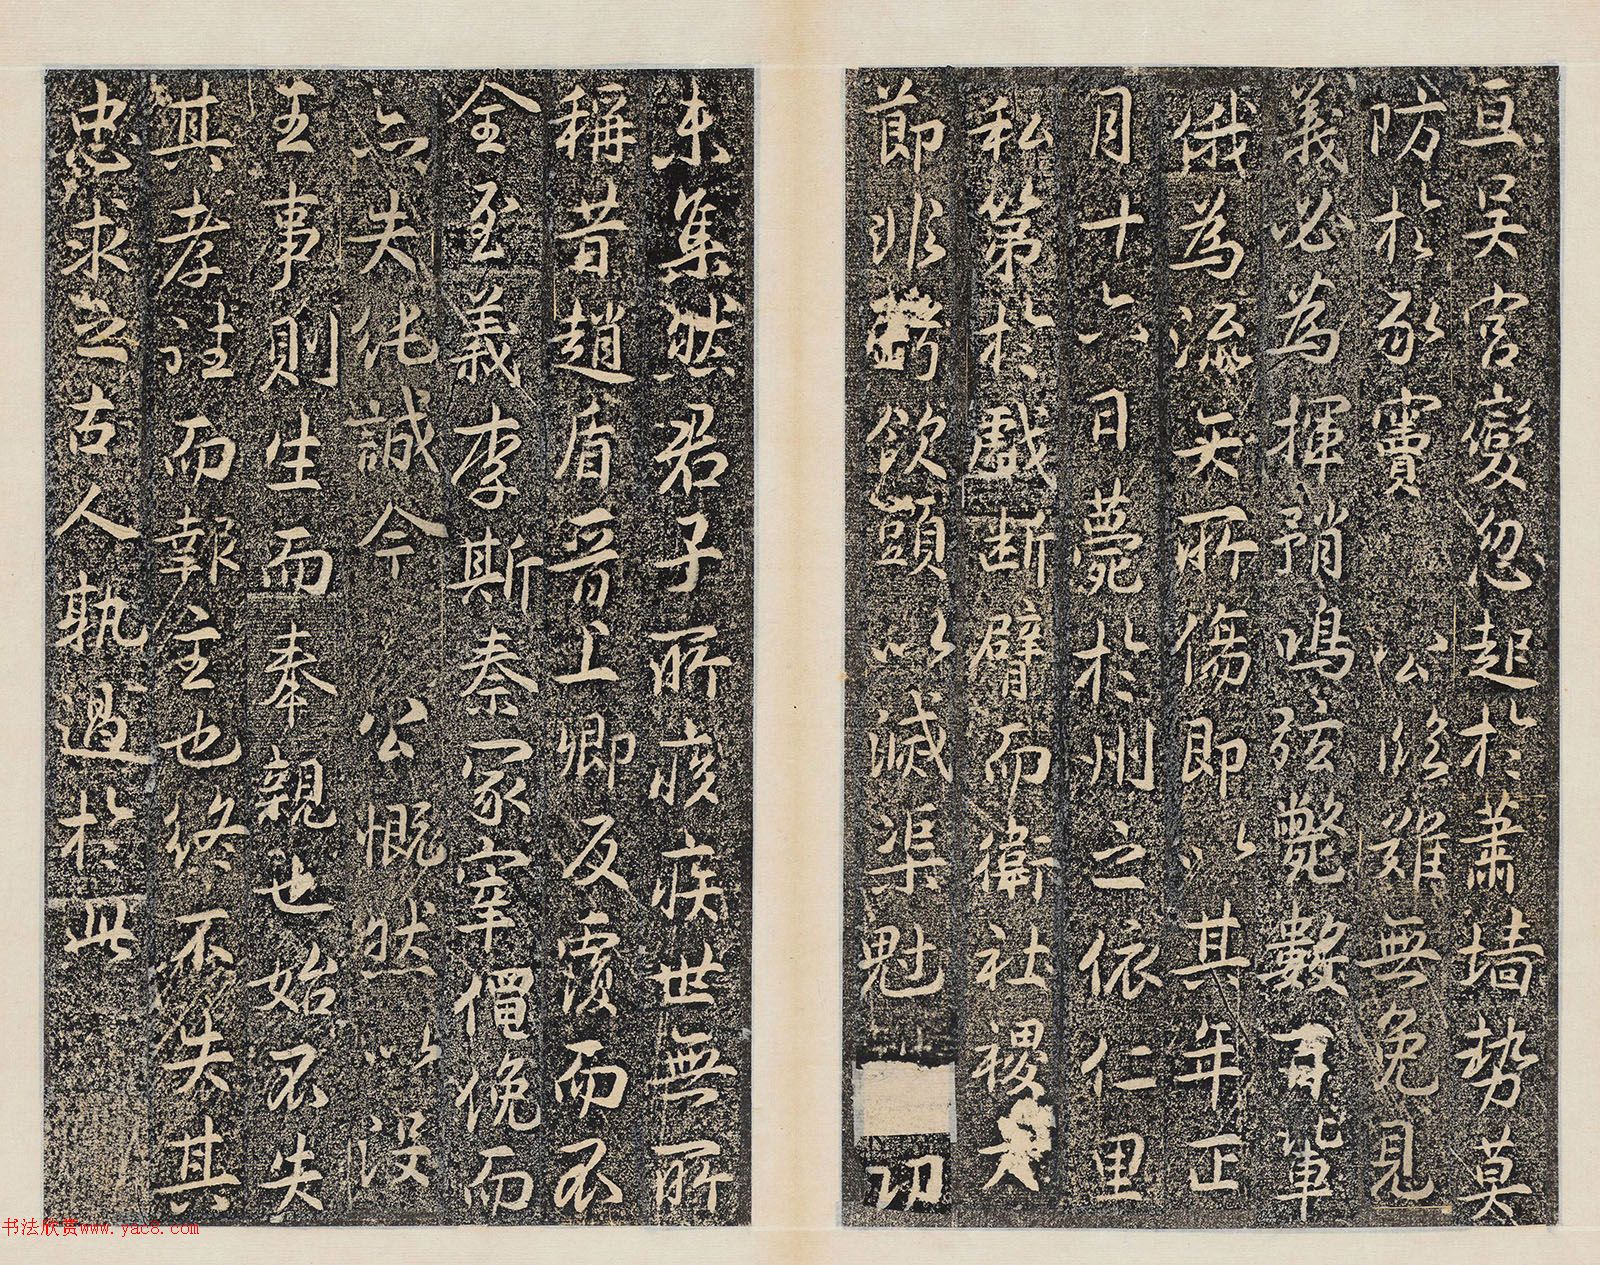 亘吴宫變忽起於蕭墙勢莫
防於豕竇公臨難無免見
義必為揮矟鳴弦斃數百輩
俄為流矢所傷即以其年正
月十六日薨於州之依仁里
私第於戲断臂而衛社稷大
節非虧飲頭以滅渠魁功
未集然君子所疾世無所
稱昔趙盾晋上卿反覆而不
全至義李斯秦冢宰僶俛而
亦失純誠今公慨然以没
王事則生而奉親也始不失
其孝往而報主也終不失其
忠求之古人孰過於此
书法欣赏www.yac8.com